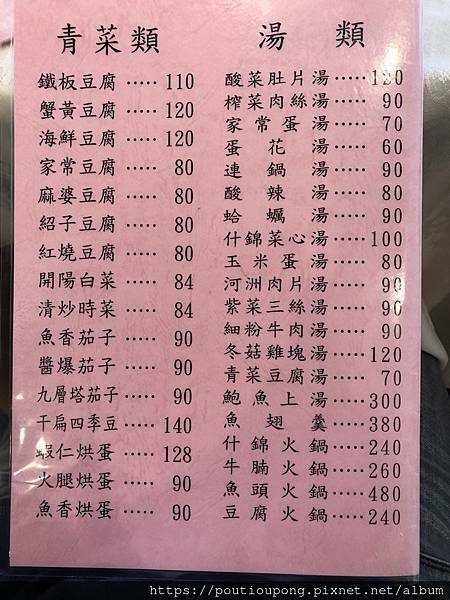 青菜類
鐵板豆腐 ····· 110
蟹黃豆腐 ····· 120
海鮮豆腐 ····· 120
家常豆腐 ····· 80
麻婆豆腐 ····· 80
紹子豆腐 ····· 80
紅燒豆腐 ····· 80
開陽白菜 ····· 84
清炒時菜 ····· 84
魚香茄子 ····· 90
醬爆茄子 ····· 90
九層塔茄子 ···· 90
干扁四季豆 ···· 140
蝦仁烘蛋 ····· 128
火腿烘蛋 ····· 90
魚香烘蛋 ····· 90
湯類
酸菜肚片湯 ····· 120
榨菜肉絲湯 ····· 90
家常蛋湯 ····· 70
蛋花湯 ····· 60
連鍋湯 ····· 90
酸辣湯 ····· 80
蛤蠣湯 ····· 90
什錦菜心湯 ····· 100
玉米蛋湯 ····· 80
河洲肉片湯 ····· 90
紫菜三絲湯 ····· 90
細粉牛肉湯 ····· 90
冬菇雞塊湯 ····· 120
青菜豆腐湯 ····· 70
鮑魚上湯 ····· 300
魚翅羹 ····· 380
什錦火鍋 ····· 240
牛腩火鍋 ····· 260
魚頭火鍋 ····· 480
豆腐火鍋 ····· 240
https://poutioupong.pixnet.net/album